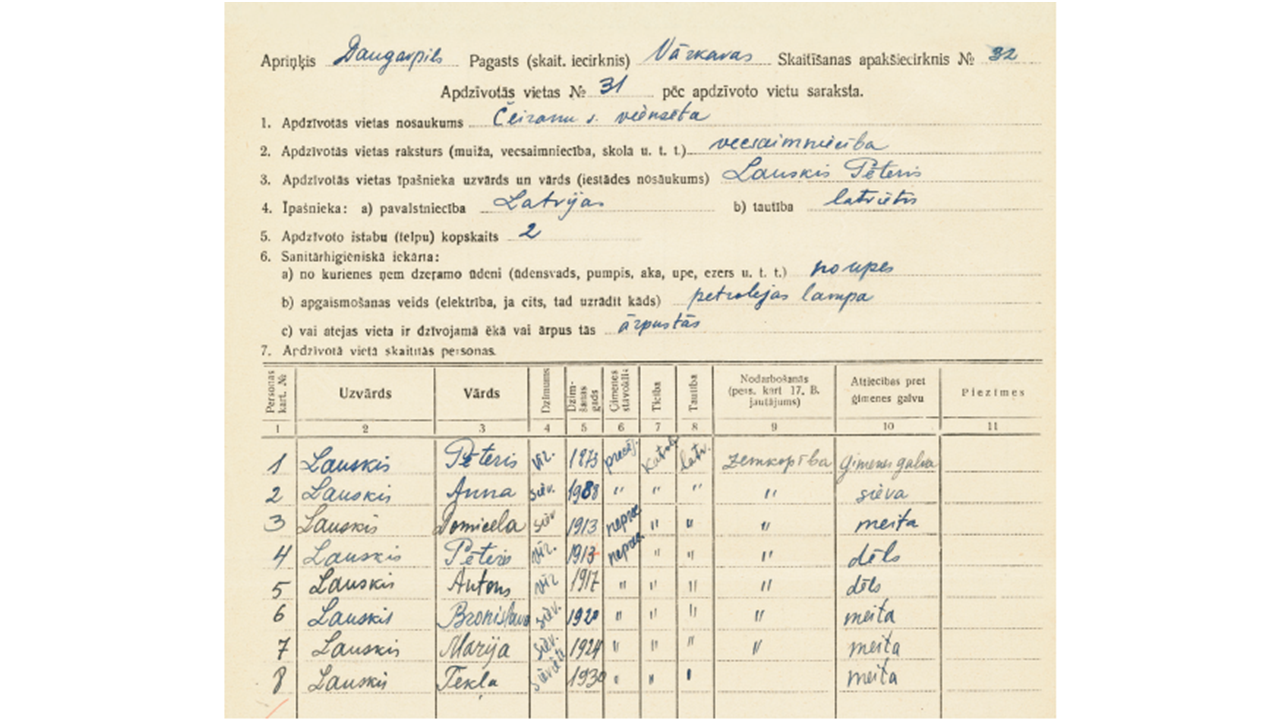 Apriņķis Daugavpils Pagasts (skait. iecirknis) Vārkavas Skaitīšanas apakšiecirknis № 32
Apdzīvotās vietas № 31 pēc apdzīvoto vietu saraksta.
1. Apdzīvotās vietas nosaukums Čeiranu s. viensēta
2. Apdzīvotās vietas raksturs (muiža, vecsaimniecība, skola u. t. t.) vecsaimniecība
3. Apdzīvotās vietas īpašnieka uzvārds un vārds (iestādes nosaukums) Lauskis Pēteris
4. Īpašnieka: a) pavalstniecība Latvijas b) tautība latvietis
5. Apdzīvoto istabu (telpu) kopskaits 2
6. Sanitārhigieniskā iekārta:
a) no kurienes ņem dzeramo ūdeni (ūdensvads, pumpis, aka, upe, ezers u. t. t.) no upes
b) apgaismošanas veids (elektrība, ja cits, tad uzrādīt kāds) petrolejas lampa
c) vai atejas vieta ir dzīvojamā ēkā vai ārpus tās ārpus tās
7. Apdzīvotā vietā skaitītās personas.
Personas kart. № Uzvārds Vārds Dzimums Dzimšanas gads Ģimenes stāvoklis Ticība Tautība Nodarbošanās (pers. kart 17. B. jautājums) Attiecības pret ģimenes galvu Piezīmes
1 2 3 4 5 6 7 8 9 10 11
1 Lauskis Pēteris vīr. precēj. katoļ. latv. zemkopība ģimenes galva
2 Lauskis Anna siev. 1988 " " " " sieva
3 Lauskis Domicela siev 1913 neprec. " " " meita
4 Lauskis Pēteris vīr. 1913 neprec. " " " dēls
5 Lauskis Antons vīr 1917 " " " " dēls
6 Lauskis Bronislava siev. 1920 " " " " meita
7 Lauskis Marija siev. 1924 " " " " meita
8 Lauskis Tekļa sieviete 1930 " " " meita